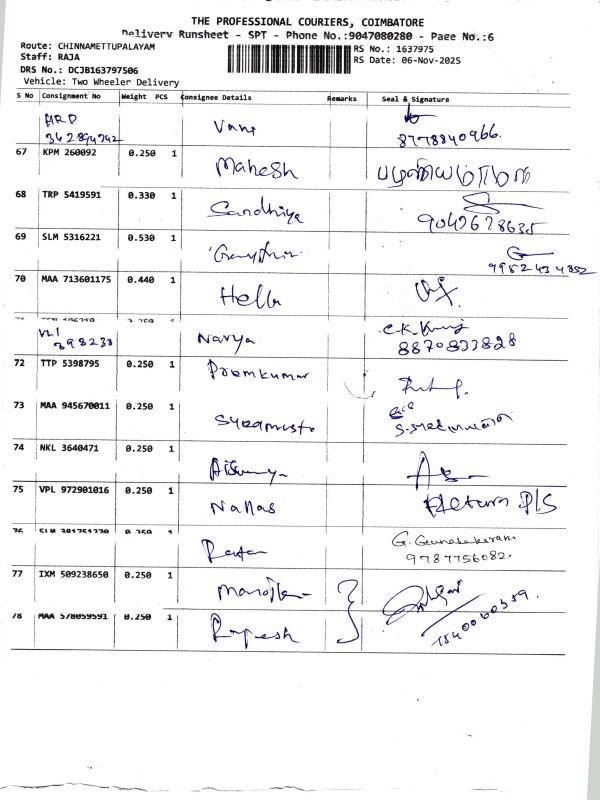 THE PROFESSIONAL COURIERS, COIMBATORE
Delivery Runsheet - SPT - Phone No.:9047080280 - Page No.:6
Route: CHINNAMETTUPALAYAM
Staff: RAJA
DRS No.: DCJB163797506
Vehicle: Two Wheeler Delivery
RS No.: 1637975
RS Date: 06-Nov-2025
S No Consignment No Weight PCS Consignee Details Remarks Seal & Signature
Vani
8778840966.
67 KPM 260092 0.250 1 Mahesh
68 TRP 5419591 0.330 1 Sandhiya
9047628635
69 SLM 5316221 0.530 1
9952434852
70 MAA 713601175 0.440 1 Hella
VL1
398238 Navya
8870837828
72 TTP 5398795 0.250 1 Premkumar
73 MAA 945670011 0.250 1
74 NKL 3640471 0.250 1
75 VPL 972901016 0.250 1 Nallas Return P/S
76 0.250 1
G. Gunasekaran
9787756082.
77 IXM 509238650 0.250 1 Manoj
78 MAA 578059591 0.250 1 Rajesh